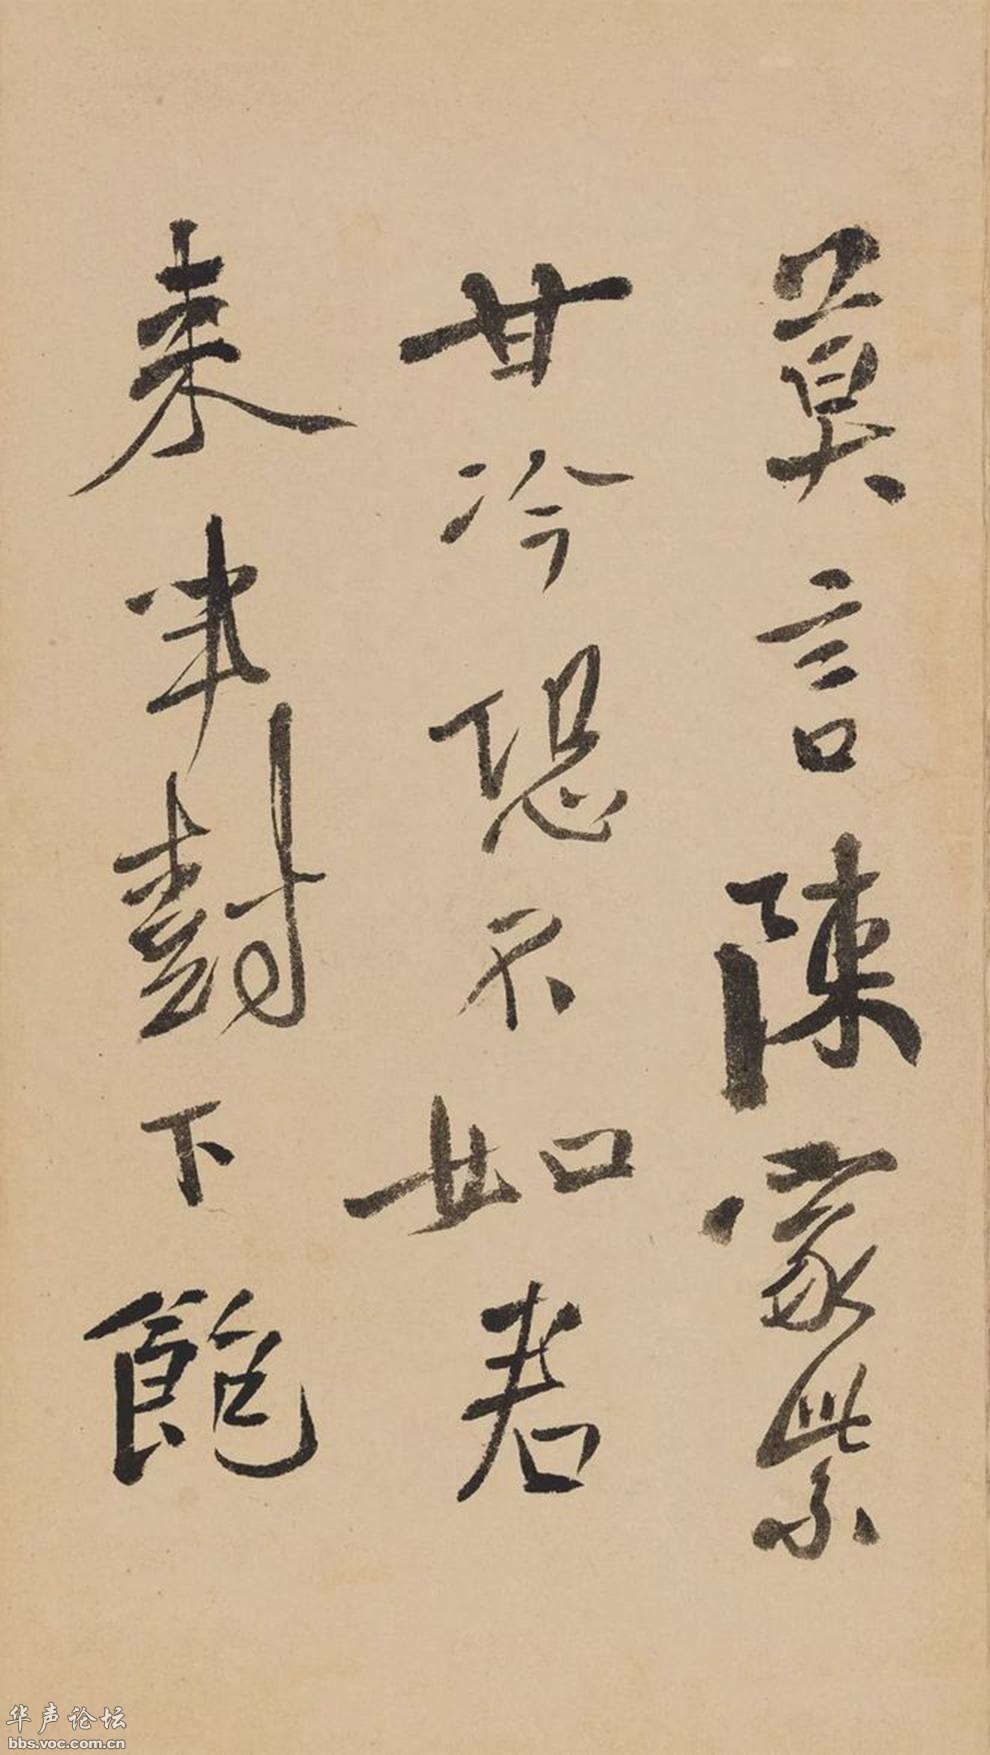 莫言陳家紫
甘冷恐不如君
来半對下飽
华声论坛
bbs.voc.com.cn